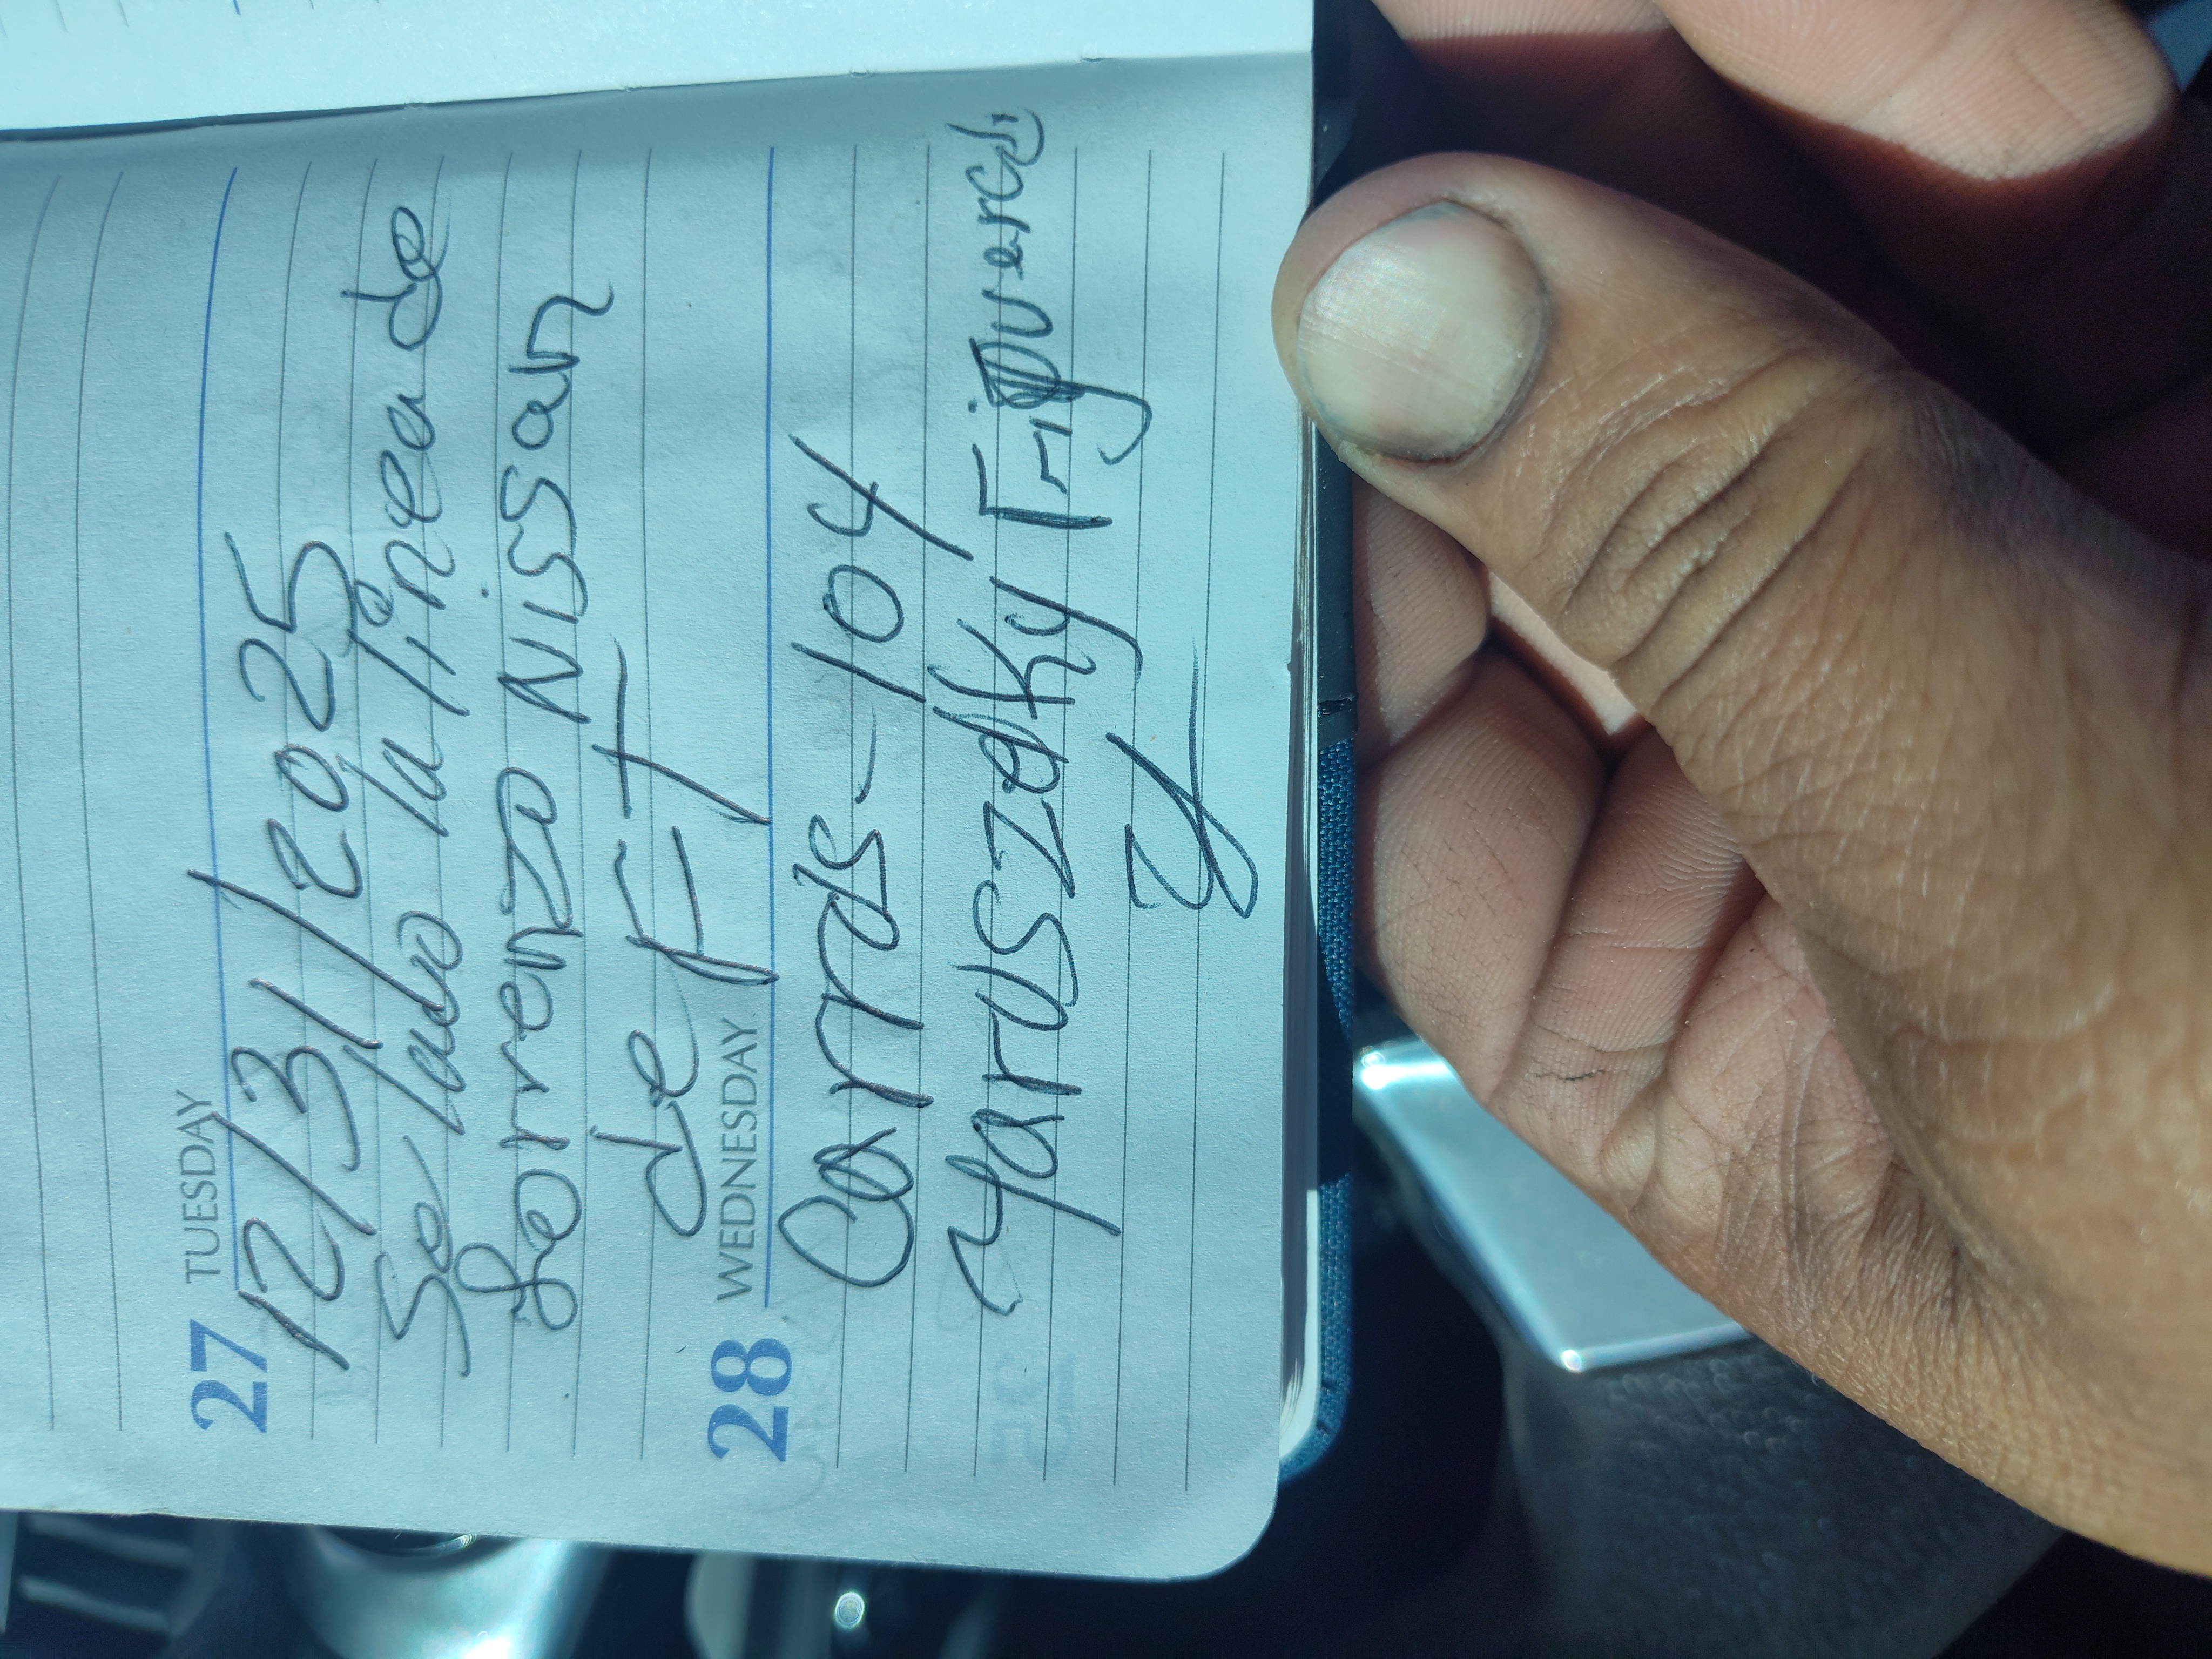 27 TUESDAY
12/31/2025
Se lavo la linea de
Lorrenzo Nissan
de FT
28 WEDNESDAY
Carrds-104
Yaruszedky